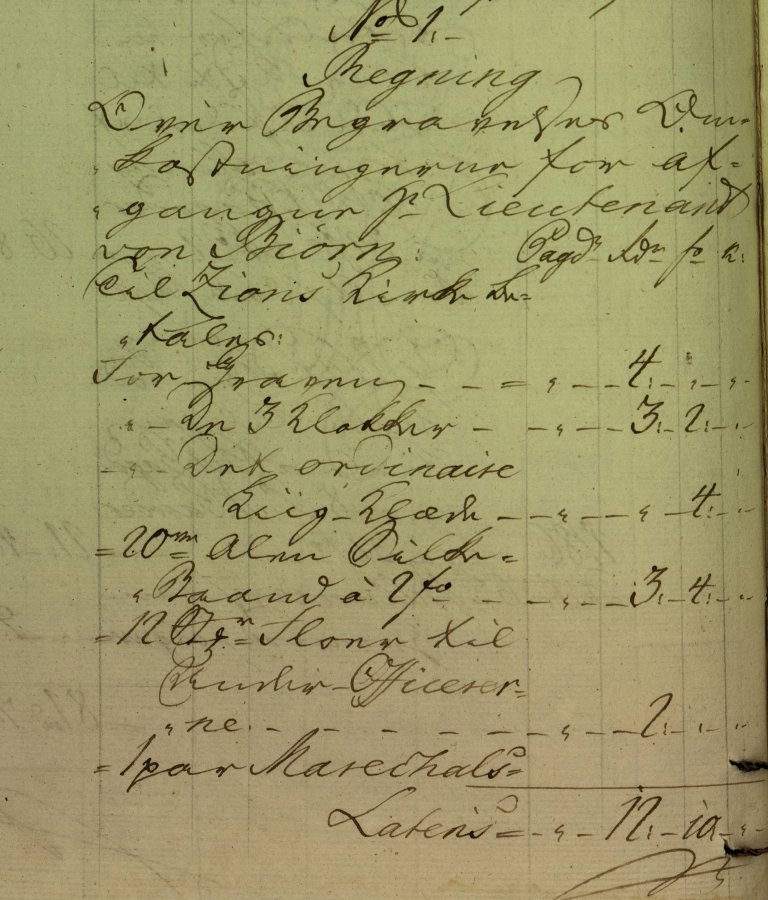 No 1.
Regning
Over Begravelses Om-
kostningerne for af-
gangne Pr. Lieutenant
von Biörn. Pagd. Rdr fo k:
Til Zions Kirke be-
tales:
For Graven - - = " - - 4. - " - "
" - De 3 Klokker - - " - - 3. - 2. - "
- " - Det ordinaire
Liig-Klæde - - " - - " - 4. - "
= 20 Alen Silke-
Baand à 2 fo - - " - - 3. - 4. - "
= 12 Floer til
Under-Officerer-
ne. - - - - - - " - - 2. - " - "
= 1 par Marechals-
Lateris = - " - 12. - 10 - "